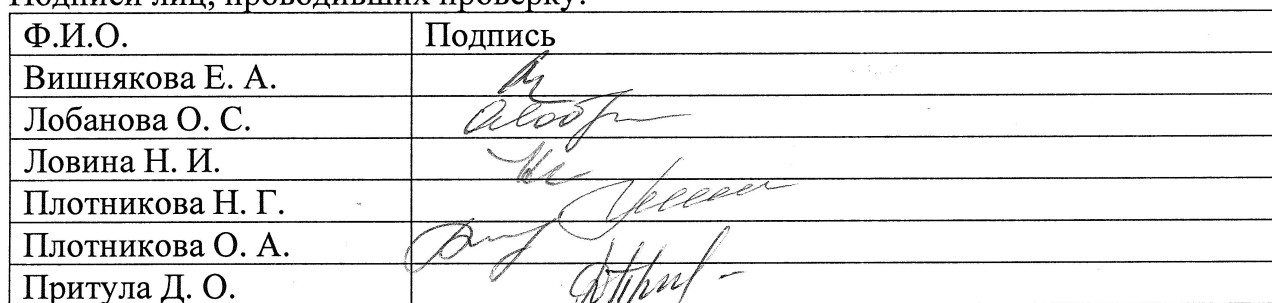 Подписи лиц, проводивших проверку:
Ф.И.О. Подпись
Вишнякова Е. А.
Лобанова О. С.
Ловина Н. И.
Плотникова Н. Г.
Плотникова О. А.
Притула Д. О.